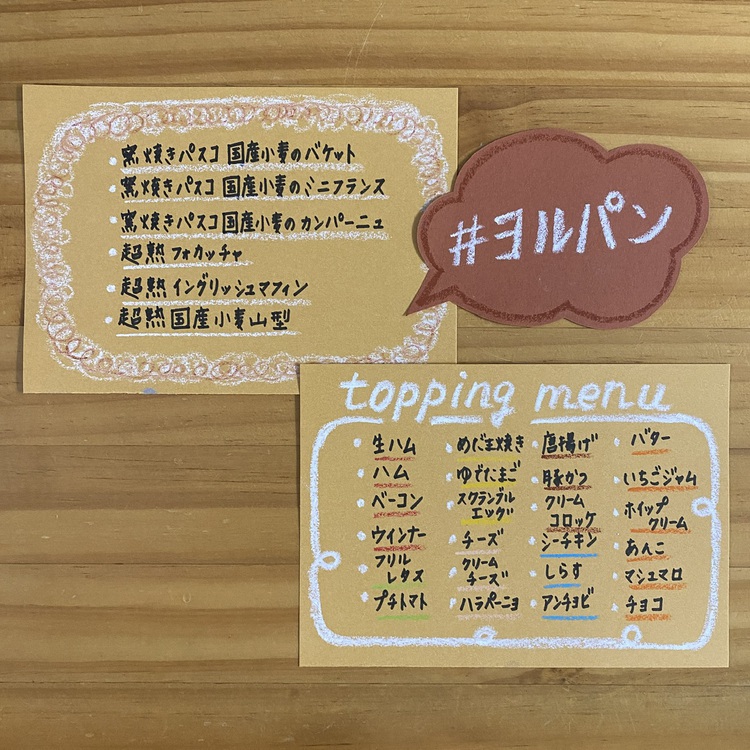 窯焼きパスコ 国産小麦のバケット
窯焼きパスコ 国産小麦のミニフランス
窯焼きパスコ 国産小麦のカンパーニュ
超熟フォカッチャ
超熟イングリッシュマフィン
超熟国産小麦山型
#ヨルパン
topping menu
生ハム
ハム
ベーコン
ウインナー
フリル
レタス
プチトマト
めだま焼き
ゆでたまご
スクランブル
エッグ
チーズ
クリーム
チーズ
ハラペーニョ
唐揚げ
豚かつ
クリーム
コロッケ
シーチキン
しらす
アンチョビ
バター
いちごジャム
ホイップ
クリーム
あんこ
マシュマロ
チョコ